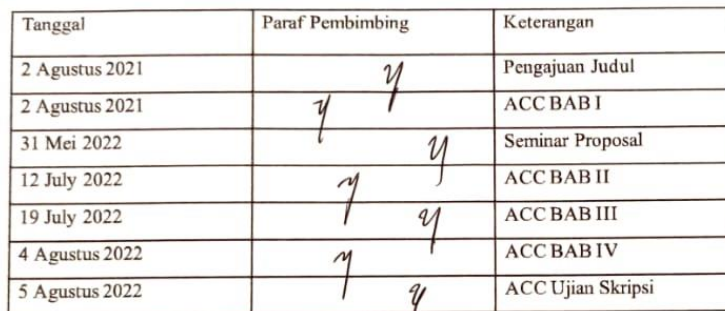 Tanggal Paraf Pembimbing Keterangan
2 Agustus 2021 Pengajuan Judul
2 Agustus 2021 ACC BAB I
31 Mei 2022 Seminar Proposal
12 July 2022 ACC BAB II
19 July 2022 ACC BAB III
4 Agustus 2022 ACC BAB IV
5 Agustus 2022 ACC Ujian Skripsi